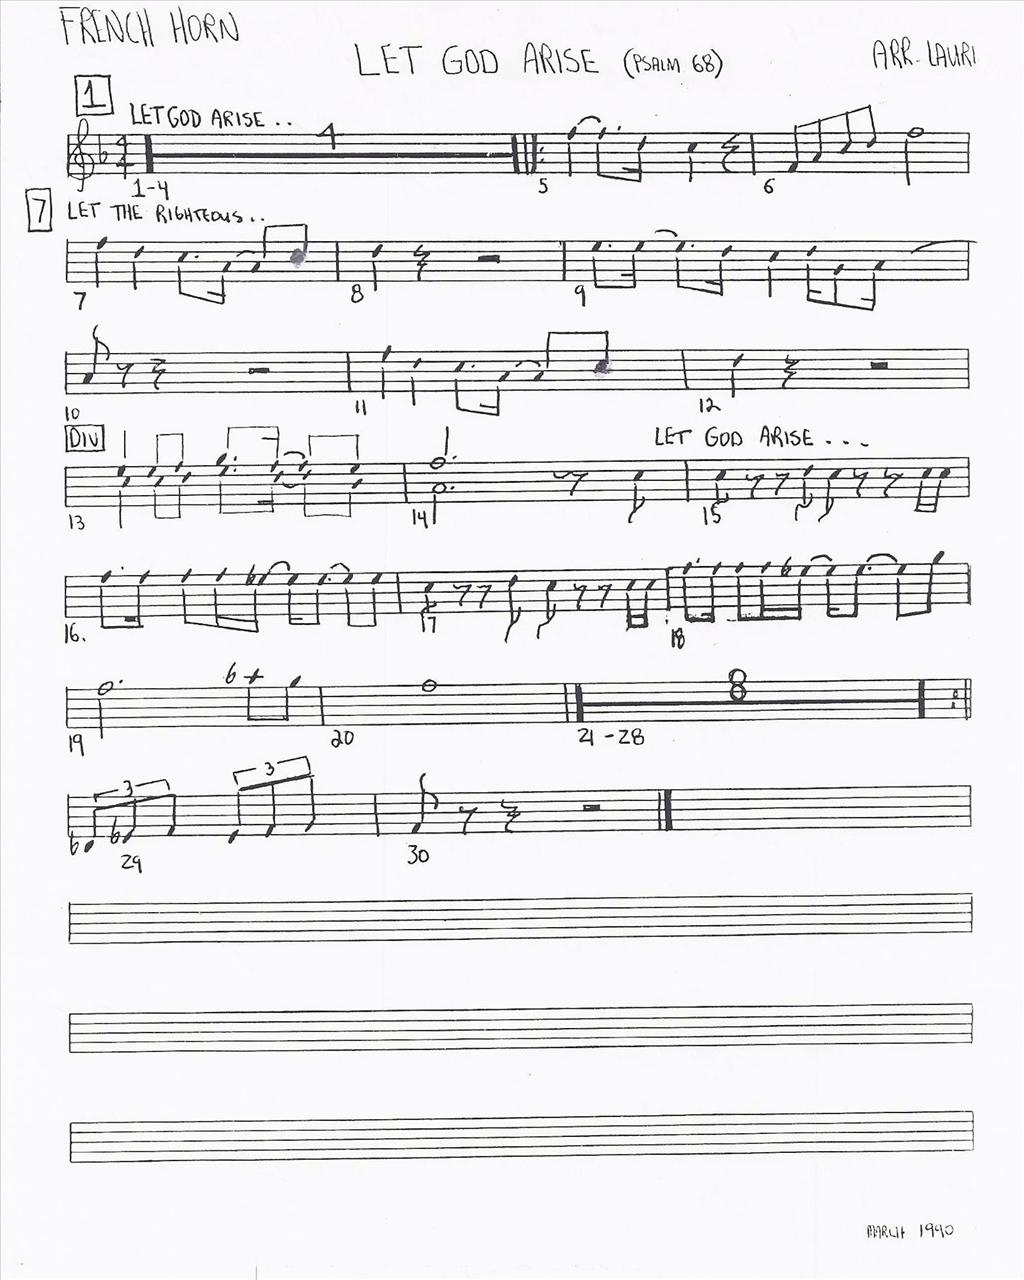 FRENCH HORN
LET GOD ARISE (PSALM 68)
ARR. LAURI
1
LET GOD ARISE . .
4
1-4 5 6
7 LET THE RIGHTEOUS . .
7 8 9
10 11 12
DIV
LET GOD ARISE . . .
13 14 15
16. 17 18
8
19 20 21-28
3 3
29 30
MARCH 1990